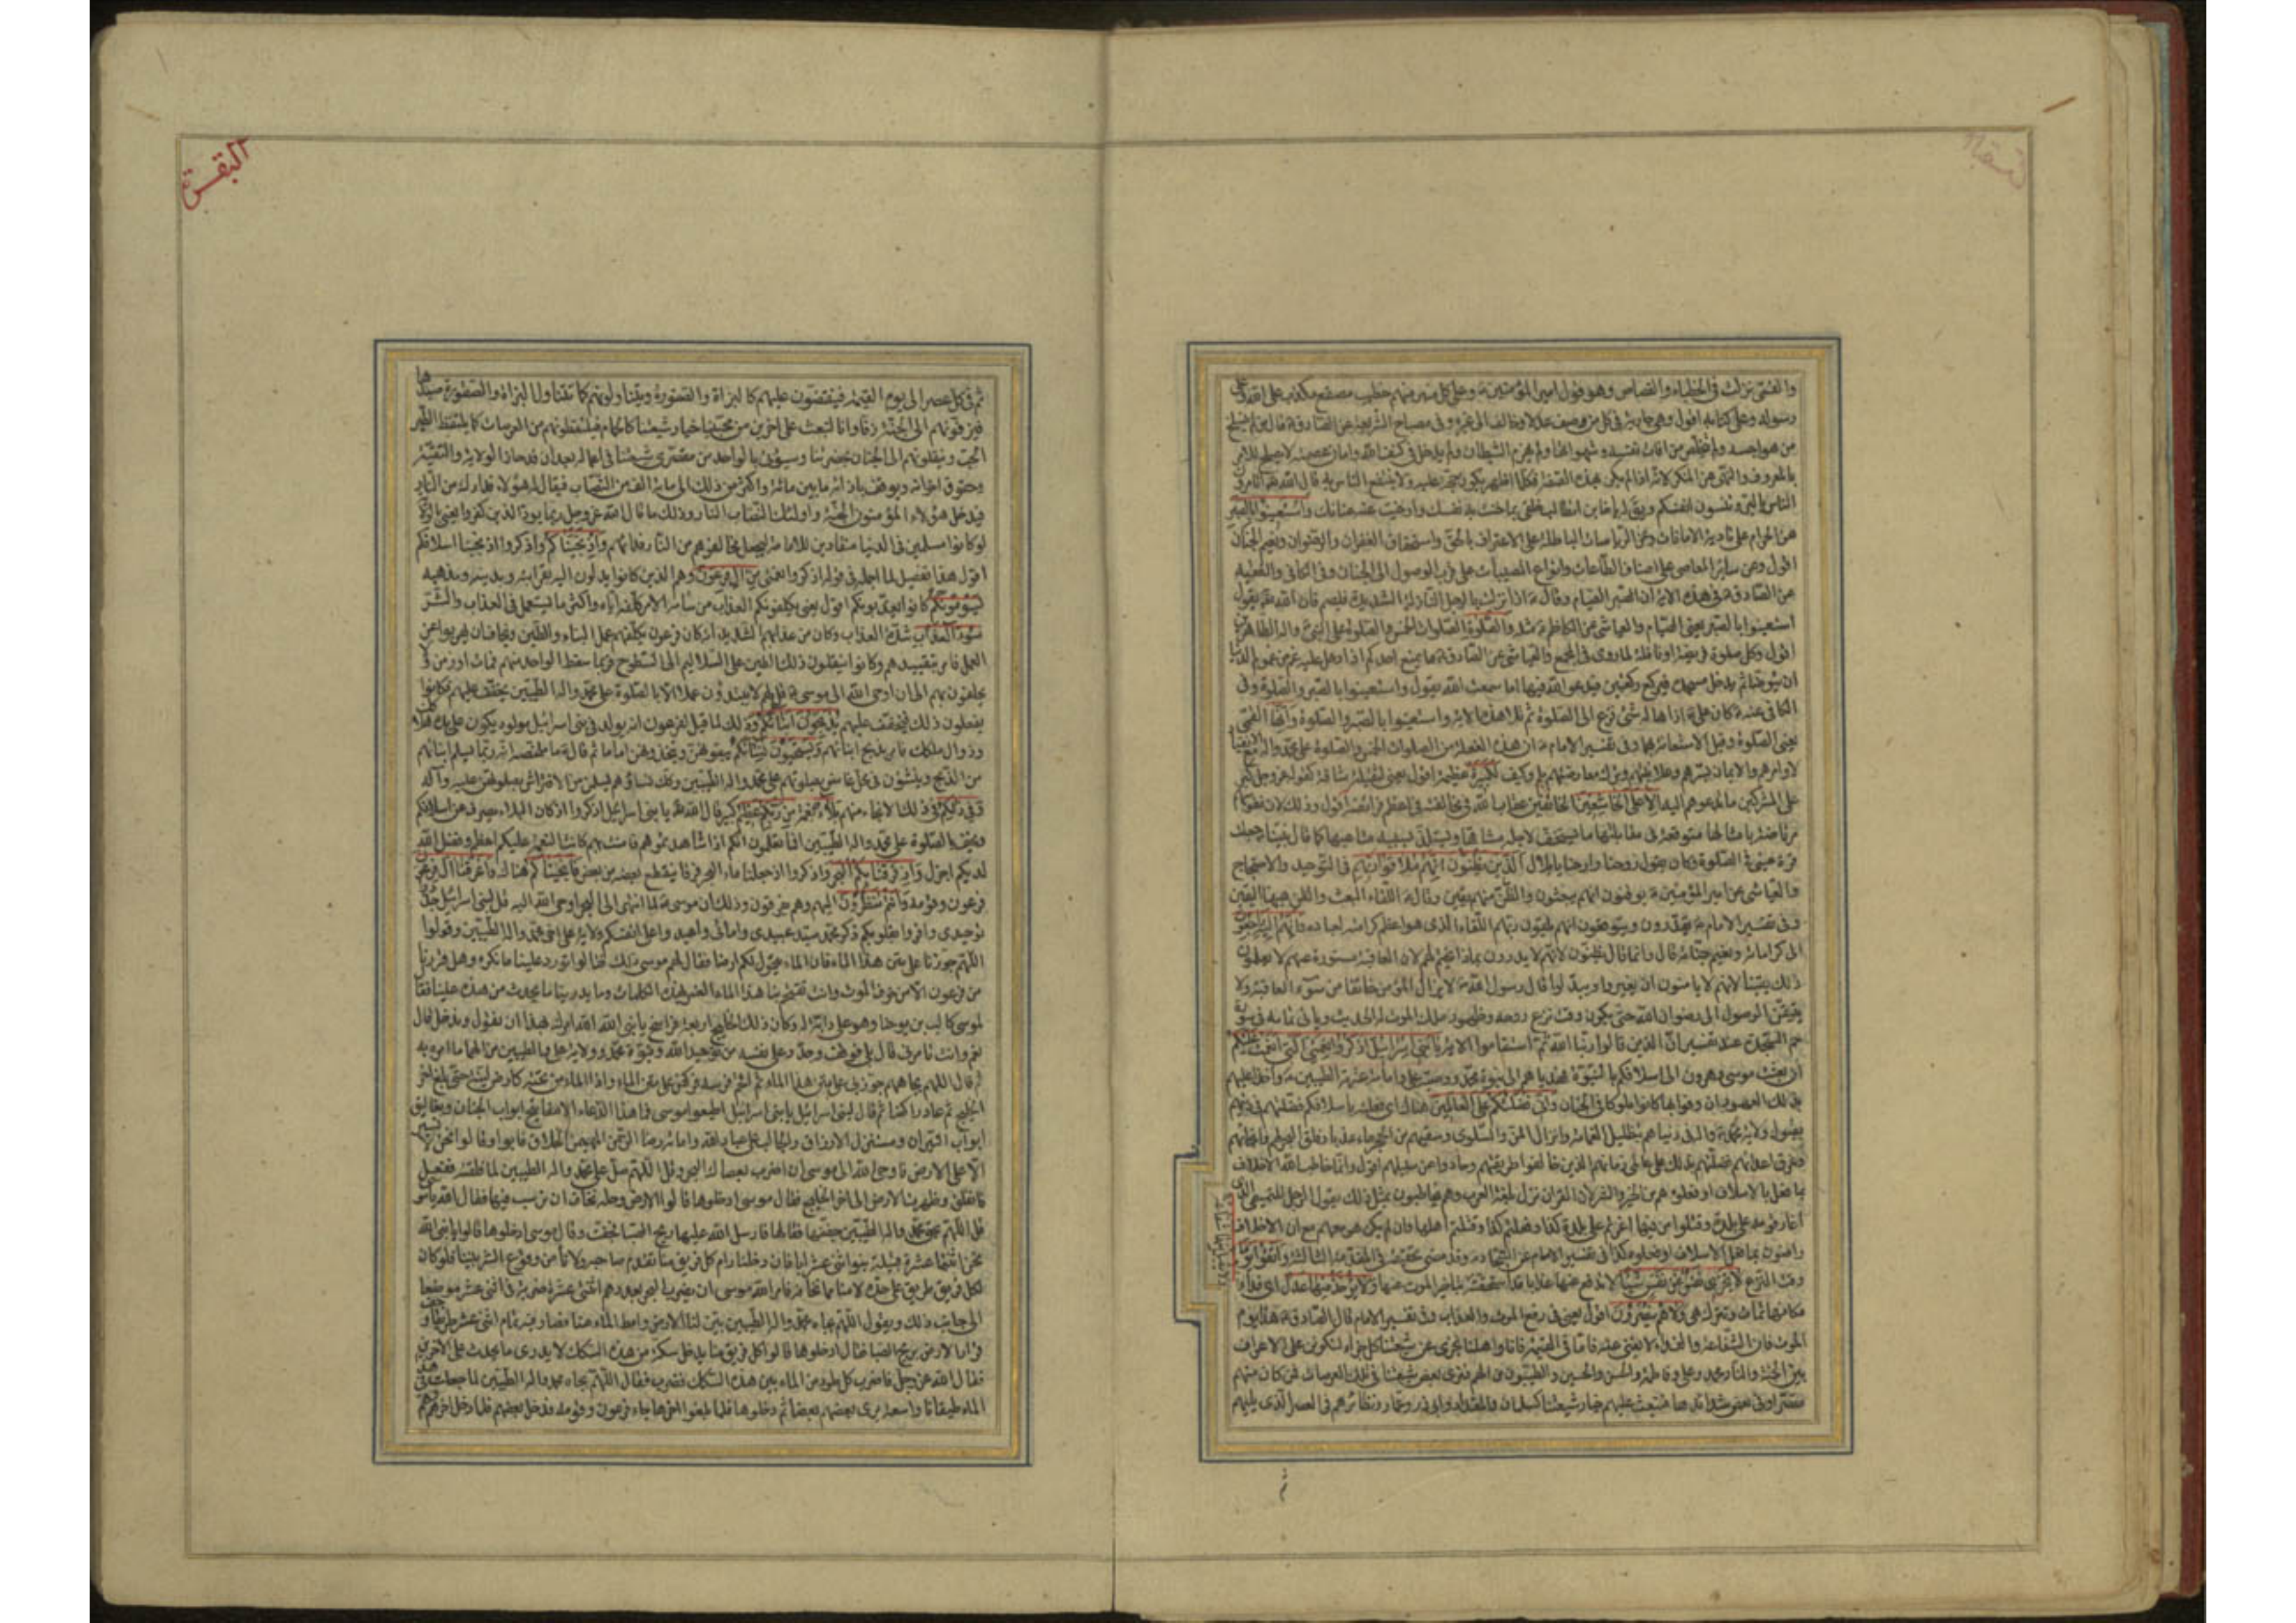 والقمّي نزلت في الخطباء والقصاص وهو قول امير المؤمنين ع وعلى كل منبر منهم خطيب مصقع يكذب على الله وعلى
رسوله وعلى كتابه اقول وهي جارية في كل من وصف عدلا وخالف الى غيره وفي مصباح الشريعة عن الصادق ع قال من لم ينسلخ
من هواجسه ولم يتخلص من افات نفسه وشهواتها ولم يهزم الشيطان ولم يدخل في كنف الله وامان عصمته لا يصلح للامر
بالمعروف والنهي عن المنكر لانه اذا لم يكن بهذه الصفة فكلما اظهر يكون حجة عليه ولا ينتفع الناس به قال الله تعالى اتأمرون
الناس بالبر وتنسون انفسكم ويقال له يا خائن اتطالب خلقي بما خنت به نفسك وارخيت عنه عنانك واستعينوا بالصبر
عن الحرام على تادية الامانات وعن الرياسات الباطلة على الاعتراف بالحق واستحقاق الغفران والرضوان ونعيم الجنان
اقول وعن سائر المعاصي على اصناف الطاعات وانواع المصيبات على قرب الوصول الى الجنان وفي الكافي والفقيه
عن الصادق ع في هذه الاية ان الصبر الصيام وقال ع اذا نزلت بالرجل النازلة الشديدة فليصم فان الله عز يقول
استعينوا بالصبر يعني الصيام والعياشي عن الكاظم ع مثله والصلوة الصلوات الخمس والصلوة على النبي واله الطاهرين
اقول وكل صلوة فريضة او نافلة لما روي في المجمع والعياشي عن الصادق ع ما يمنع احدكم اذا دخل عليه غم من غموم الدنيا
ان يتوضأ ثم يدخل مسجده فيركع ركعتين فيدعو الله فيها اما سمعت الله يقول واستعينوا بالصبر والصلوة وفي
الكافي عنه ع كان علي ع اذا هاله شيء فزع الى الصلوة ثم تلا هذه الاية واستعينوا بالصبر والصلوة وانها القمي
يعني الصلوة وقيل الاستعانة بهما وفي تفسير الامام ع ان هذه الفعلة من الصلوات الخمس والصلوة على محمد واله مع الانقياد
لاوامرهم والايمان بسرهم وعلانيتهم وترك معارضتهم بلم وكيف لكبيرة عظيمة اقول يعني لثقيلة شاقة كقوله عز وجل كبر
على المشركين ما تدعوهم اليه الا على الخاشعين الخائفين عقاب الله في مخالفته في اعظم فرائضه اقول وذلك لان نفوسهم
مرتاضة بامثالها متوقعة في مقابلتها ما يستخف لاجله مشاقها ويستلذ بسببه متاعبها كما قال نبينا ص جعلت
قرة عيني في الصلوة وكان يقول روحنا وارحنا يا بلال الذين يظنون انهم ملاقوا ربهم في التوحيد والاحتجاج
والعياشي عن امير المؤمنين ع يوقنون انهم يبعثون والظن منهم يقين وقال ع اللقاء البعث والظن ههنا اليقين
وفي تفسير الامام ع يقدرون ويتوقعون انهم يلقون ربهم اللقاء الذي هو اعظم كرامته لعباده وانهم اليه راجعون
الى كراماته ونعيم جناته قال وانما قال يظنون لانهم لا يدرون بماذا يختم لهم لان العاقبة مستورة عنهم لا يعلمون
ذلك يقينا لانهم لا يامنون ان يغيروا ويبدلوا قال رسول الله ص لا يزال المؤمن خائفا من سوء العاقبة ولا
يتيقن الوصول الى رضوان الله حتى يكون وقت نزع روحه وظهور ملك الموت له الحديث وياتي تمامه في سورة
حم السجدة عند تفسير ان الذين قالوا ربنا الله ثم استقاموا الاية يا بني اسرائيل اذكروا نعمتي التي انعمت عليكم
ان بعثت موسى وهرون الى اسلافكم بالنبوة فهدياهم الى نبوة محمد ووصية علي وامامة عترته الطيبين ع واخذ عليهم
بذلك العهود ان وفوا بها كانوا ملوكا في الجنان واني فضلتكم على العالمين هناك اي فعلته باسلافكم فضلتهم في دينهم
بقبول ولاية محمد واله وفي دنياهم بتظليل الغمام وانزال المن والسلوى وسقيهم من الحجر ماء عذبا وفلق البحر لهم فانجائهم
وغرق اعدائهم فضلتهم بذلك على عالمي زمانهم الذين خالفوا طريقتهم وحادوا عن سبيلهم اقول وانما خاطب الله الاخلاف
بما فعل بالاسلاف او فعلوه هم من الخير والشر لان القران نزل بلغة العرب وهم يتخاطبون بمثل ذلك يقول الرجل للتميمي الذي
اغار قومه على بلدة وقتلوا من فيها اغرتم على بلدة كذا وفعلتم كذا وقتلتم اهلها وان لم يكن هو معهم مع ان الاخلاف
راضون بما فعل الاسلاف او فعلوه كذا في تفسير الامام عن السجاد ع وقد مضى تحقيقه في المقدمة الثالثة واتقوا يوما
وقت النزع لا تجزي نفس عن نفس شيئا لا تدفع عنها عذابا قد استحقته ولا يؤخذ منها عدل اي فداء
مكانها تمات وتترك هي ولا هم ينصرون اقول يعني في دفع الموت والعذاب وفي تفسير الامام قال الصادق ع هذا يوم
الموت فان الشفاعة والفداء لا يغني عنه فاما في القيمة فانا واهلنا نجزي عن شيعتنا كل جزاء لنكونن على الاعراف
بين الجنة والنار محمد وعلي وفاطمة والحسن والحسين والطيبون من الهم فنرى بعض شيعتنا في تلك العرصات فمن كان منهم
مقصرا وفي بعض شدائدها فنبعث عليهم خيار شيعتنا كسلمان والمقداد وابي ذر وعمار ونظائرهم في العصر الذي يليهم
ثم
البقرة
ثم في كل عصر الى يوم القيمة فينقضون عليهم كالبزاة والصقورة ويتناولونهم كما تتناول البزاة والصقورة صيدها
فيزفونهم الى الجنة زفا وانا لنبعث على اخرين من محبينا خيار شيعتنا كالحمام فيلتقطونهم من العرصات كما يلتقط الطير
الحب وينقلونهم الى الجنان بحضرتنا وسيؤتى بالواحد من مقصري شيعتنا في اعماله بعد ان قد حاز الولاية والتقية
وحقوق اخوانه ويوقف بازائه ما بين مائة واكثر من ذلك الى مائة الف من النصاب فيقال له هؤلاء فداؤك من النار
فيدخل هؤلاء المؤمنون الجنة واولئك النصاب النار وذلك ما قال الله عز وجل ربما يود الذين كفروا يعني بالولاية
لو كانوا مسلمين في الدنيا منقادين للامامة ليجعل مخالفوهم من النار فداءهم واذ نجيناكم واذكروا اذ نجينا اسلافكم
اقول هذا تفصيل لما اجمله في قوله اذكروا نعمتي من ال فرعون وهم الذين كانوا يدلون اليه بقرابته وبدينه ومذهبه
يسومونكم كانوا يعذبونكم اقول يعني يكلفونكم العذاب من سامه الامر كلفه اياه واكثر ما يستعمل في العذاب والشر
سوء العذاب شدة العذاب وكان من عذابهم الشديد انه كان فرعون يكلفهم عمل البناء والطين ويخاف ان يهربوا عن
العمل فامر بتقييدهم وكانوا ينقلون ذلك الطين على السلاليم الى السطوح فربما سقط الواحد منهم فمات او زمن لا
يحفلون بهم الى ان اوحى الله الى موسى ع قل لهم لا يبتدؤن عملا الا بالصلوة على محمد واله الطيبين ليخفف عليهم فكانوا
يفعلون ذلك فيخفف عليهم يذبحون ابناءكم وذلك لما قيل لفرعون انه يولد في بني اسرائيل مولود يكون على يده هلاكك
وزوال ملكك فامر بذبح ابنائهم ويستحيون نساءكم يبقونهن ويتخذونهن اماء ثم قال ع ما ملخصه انه ربما يسلم ابنائهم
من الذبح وينشؤن في محل غامض بصلوتهم على محمد واله الطيبين وكذلك نساؤهم يسلمن من الافتراش بصلوتهن عليه وآله
وفي ذلكم في ذلك الانجاء منهم بلاء نعمة من ربكم عظيم كبير قال الله يا بني اسرائيل اذكروا اذ كان البلاء يصرف عن اسلافكم
ويخفف بالصلوة على محمد واله الطيبين افلا تعلمون انكم اذا شاهدتموهم فامنتم بهم كانت النعمة عليكم اعظم وفضل الله
لديكم اجزل واذ فرقنا بكم البحر واذكروا اذ جعلنا ماء البحر فرقا ينقطع بعضه من بعض فانجيناكم هناك واغرقنا ال فرعون
فرعون وقومه وانتم تنظرون اليهم وهم يغرقون وذلك ان موسى ع لما انتهى الى البحر اوحى الله اليه قل لبني اسرائيل جددوا
توحيدي واقروا بقلوبكم ذكر محمد سيد عبيدي وامائي واعيدوا على انفسكم ولاية علي اخي محمد واله الطيبين وقولوا
اللهم جوزنا على متن هذا الماء فان الماء يتحول لكم ارضا فقال لهم موسى ذلك فقالوا تورد علينا ما نكره وهل فررنا
من فرعون الا من خوف الموت وانت تقتحم بنا هذا الماء الغمر بهذه الكلمات وما يدرينا ما يحدث من هذه علينا فقال
لموسى كالب بن يوحنا وهو على دابة له وكان ذلك الخليج اربعة فراسخ يا نبي الله الله امرك بهذا ان نقوله وندخل قال
نعم وانت تامرني قال بلى فوقف وجدد على نفسه من توحيد الله ونبوة محمد وولاية علي والطيبين من الهما ما امره به
ثم قال اللهم بجاههم جوزني على متن هذا الماء ثم اقحم فرسه فركض على متن الماء واذا الماء من تحته كارض لينة حتى بلغ اخر
الخليج ثم عاد راكضا ثم قال لبني اسرائيل يا بني اسرائيل اطيعوا موسى فما هذا الدعاء الا مفتاح ابواب الجنان ومغاليق
ابواب النيران ومستنزل الارزاق والجالب على عباد الله وامائه رضا الرحمن المهيمن الخلاق فابوا وقالوا نحن لا نسير
الا على الارض فاوحى الله الى موسى ان اضرب بعصاك البحر وقل اللهم صل على محمد واله الطيبين لما فلقته ففعل
فانفلق وظهرت الارض الى اخر الخليج فقال موسى ادخلوها قالوا الارض وحلة نخاف ان نرسب فيها فقال الله يا موسى
قل اللهم بحق محمد واله الطيبين جففها فقالها فارسل الله عليها ريح الصبا فجفت وقال موسى ادخلوها قالوا يا نبي الله
نحن اثنتا عشرة قبيلة بنو اثني عشر ابا فان دخلنا رام كل فريق منا تقدم صاحبه ولا نأمن وقوع الشر بيننا فلو كان
لكل فريق طريق على حدة لامنا ما نخافه فامر الله موسى ان يضرب البحر بعددهم اثنتي عشرة ضربة في اثني عشر موضعا
الى جانب ذلك ويقول اللهم بجاه محمد واله الطيبين بين لنا الارض وامط الماء عنا فصار فيه تمام اثني عشر طريقا وجف
قرار الارض بريح الصبا فقال ادخلوها قالوا كل فريق منا يدخل سكة من هذه السكك لا يدري ما يحدث على الاخرين
فقال الله عز وجل فاضرب كل طود من الماء بين هذه السكك فضرب فقال اللهم بجاه محمد واله الطيبين لما جعلت في هذا
الماء طيقانا واسعة يرى بعضهم بعضا ثم دخلوها فلما بلغوا اخرها جاء فرعون وقومه فدخل بعضهم فلما دخل اخرهم وهم